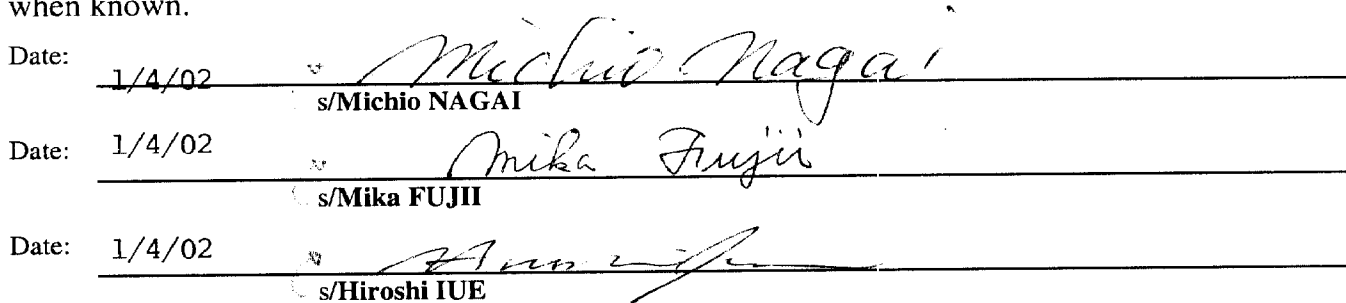 when known.
Date: 1/4/02 Michio Nagai
s/Michio NAGAI
Date: 1/4/02 Mika Fujii
s/Mika FUJII
Date: 1/4/02
s/Hiroshi IUE